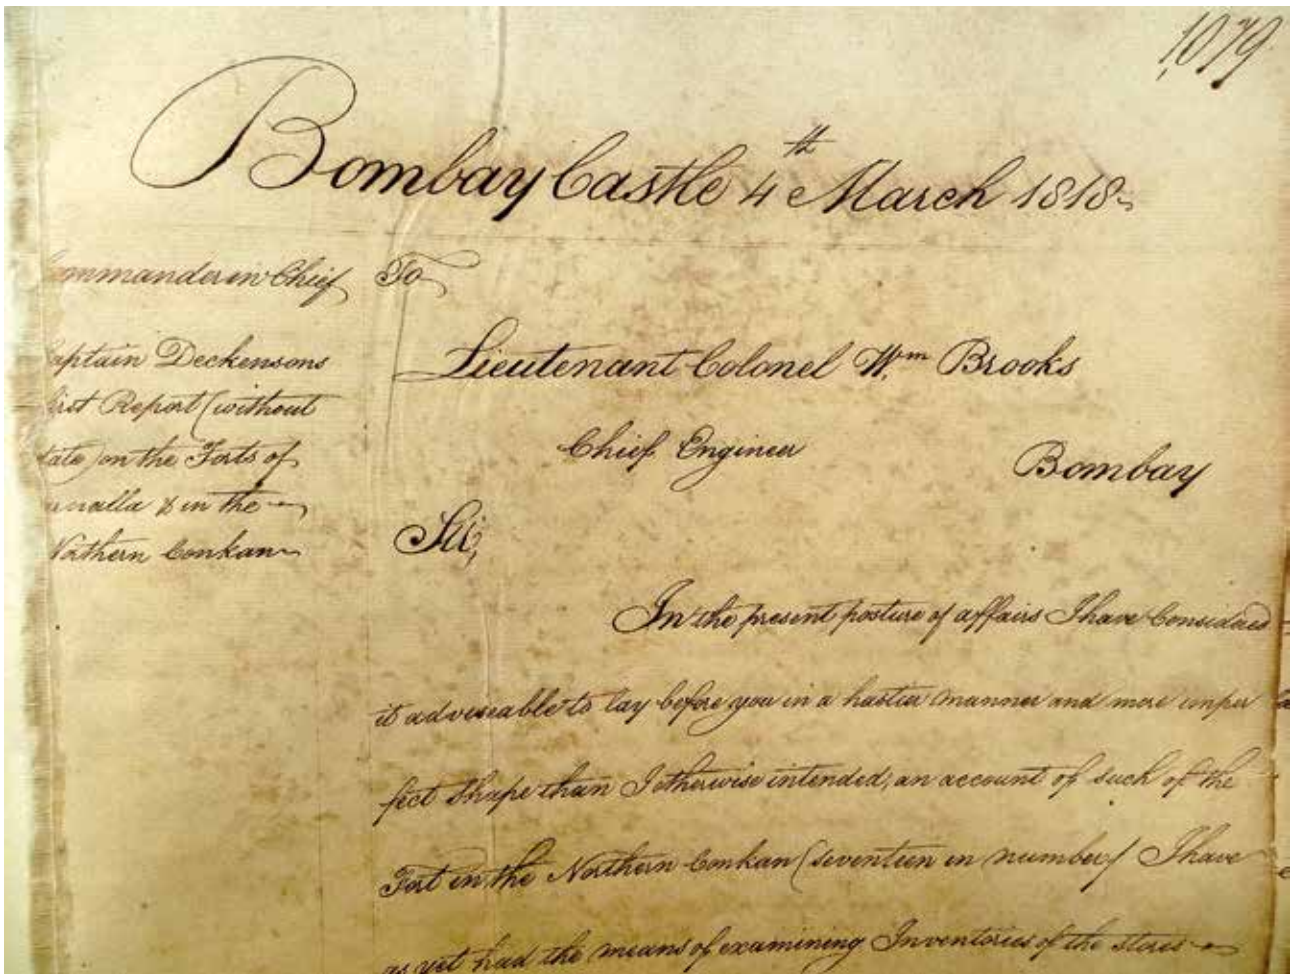 1079
Bombay Castle 4th March 1818
Commander in Chief
Captain Deckensons
first Report (without
date) on the Forts of
& in the
Northern Conkan
To
Lieutenant Colonel Wm Brooks
Chief Engineer
Bombay
Sir,
In the present posture of affairs I have Considered
it adviseable to lay before you in a hastier manner and more imper
fect shape than I otherwise intended, an account of such of the
Fort in the Northern Conkan (seventeen in number) I have
as yet had the means of examining Inventories of the stores